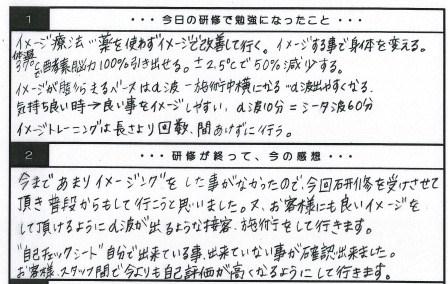 1 ・・・今日の研修で勉強になったこと・・・
イメージ療法…薬を使わずイメージで改善して行く。イメージする事で身体を変える。
体温37℃で酵素脳力100%引き出せる。±2.5℃で50%減少する。
イメージが膨らえるベースはα波…施術中横になる→α波出やすくなる。
気持ち良い時→良い事をイメージしやすい。α波10分=シータ波60分
イメージトレーニングは長さより回数、間あけずに行う。
2 ・・・研修が終って、今の感想・・・
今まであまりイメージングをした事がなかったので、今回研修を受けさせて
頂き普段からもして行こうと思いました。又、お客様にも良いイメージを
して頂けるようにα波が出るような接客、施術をして行きます。
"自己チェックシート"自分で出来ている事、出来ていない事が確認出来ました。
お客様、スタッフ間で今よりも自己評価が高くなるようにして行きます。